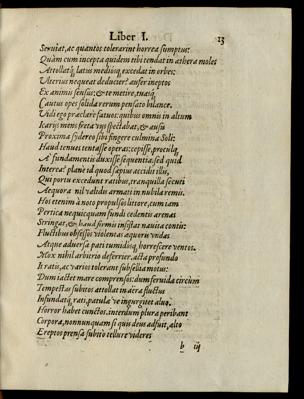 Liber I. 13
Seruiat, ac quantos tolerarint horrea sumptus:
Quàm cum incepta quidem tibi tendat in æthera moles
Attollatq́; latus mediosq́; excedat in orbes:
Vlterius nequeat deducier? auser ineptos
Ex animis sensus: & te metire, tuasq́;
Cautus opes solida rerum pensato bilance.
Vidi ego præclare fatuos: quibus omnis in altum
Icarijs mens freta spectabat, & ausu
Proxima sidereo sibi fingere culmina Soli:
Haud tenues tentasse operas: cepisse procliq́;
A' fundamentis duxisse sequentia, sed quid
Interea? planè id quod sæpius accidit illis,
Qui portu excedunt ratibus, tranquilla secuti
Aequora nil validis armati in nubila remis.
Hos etenim à noto propulsos littore, cum iam
Pertica nequicquam fundi cedentis arenas
Stringat, & haud firmis insistat nauita contis:
Fluctibus obsessos violentas æquoru undas
Atque aduersa pati tumidisq́; horrescere ventos.
Mox nihil arbitrio deferrier, acta profundo
It ratis, ac varios tolerant subsellia motus:
Dum iactet mare comprensos: dum feruida circum
Tempestas subitos attollat in aëra fluctus
Infundatq́; rati, patulæ ve ingurgitet aluo.
Horror habet cunctos. interdum plura peribant
Corpora, nonnunquam si quis deus adsuit, alto
Ereptos prensa subitò tellure videres
b iij